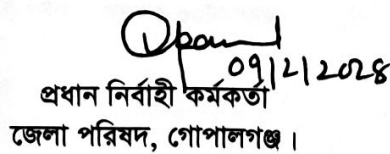 09/2/2028
প্রধান নির্বাহী কর্মকর্তা
জেলা পরিষদ, গোপালগঞ্জ।